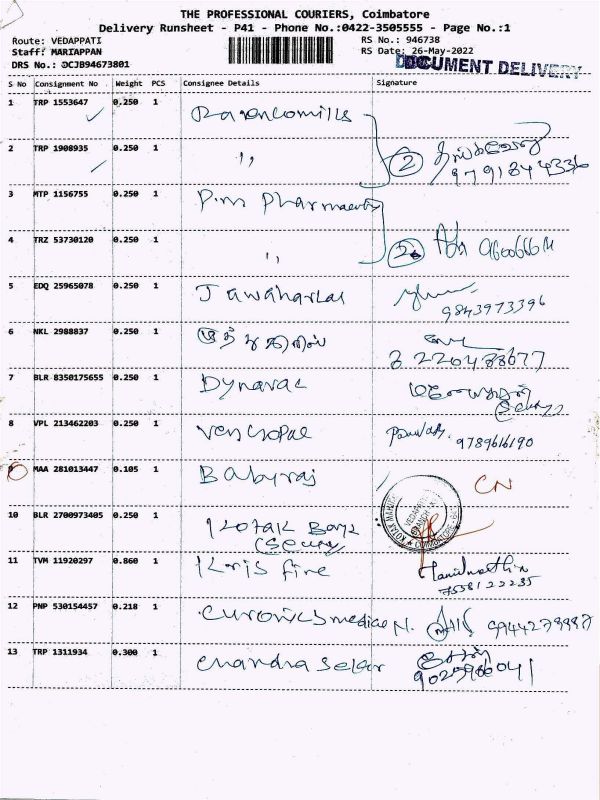 THE PROFESSIONAL COURIERS, Coimbatore
Delivery Runsheet - P41 - Phone No.:0422-3505555 - Page No.:1
Route: VEDAPPATI RS No.: 946738
Staff: MARIAPPAN RS Date: 26-May-2022
DRS No.: DCJB94673801 DOCUMENT DELIVERY
S No Consignment No Weight PCS Consignee Details Signature
1 TRP 1553647 0.250 1
2 TRP 1908935 0.250 1 ,, 2
9791844336
3 MTP 1156755 0.250 1 P.m Pharmacuty
4 TRZ 53730120 0.250 1 ,, 2
5 EDQ 25965078 0.250 1 Jawaharlal
9843973396
6 NKL 2988837 0.250 1
8220488677
7 BLR 8350175655 0.250 1 Dynavac
8 VPL 213462203 0.250 1 Venugopal 9789616190
9 MAA 281013447 0.105 1 Babyraj CN
10 BLR 2700973405 0.250 1 Kotak Bank
11 TVM 11920297 0.860 1 Kris fire
7558122235
12 PNP 530154457 0.218 1
13 TRP 1311934 0.300 1 Chandra Sekar